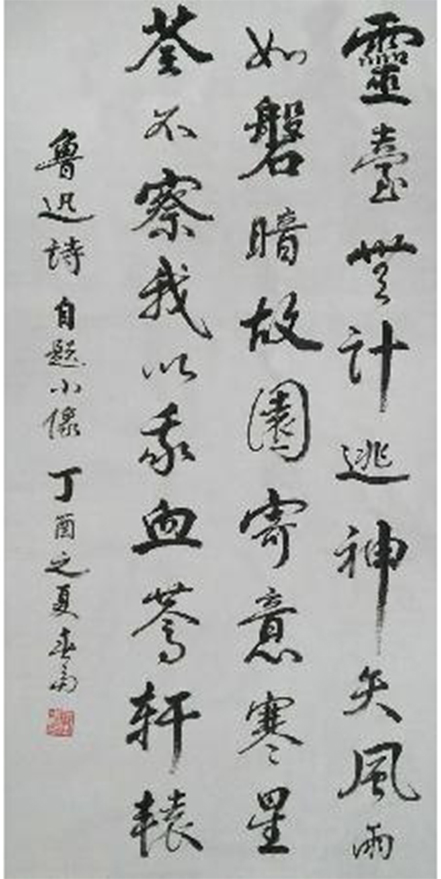 靈臺無計逃神矢風雨
如磐暗故園寄意寒星
荃不察我以我血薦轩辕
魯迅詩自題小像丁酉之夏